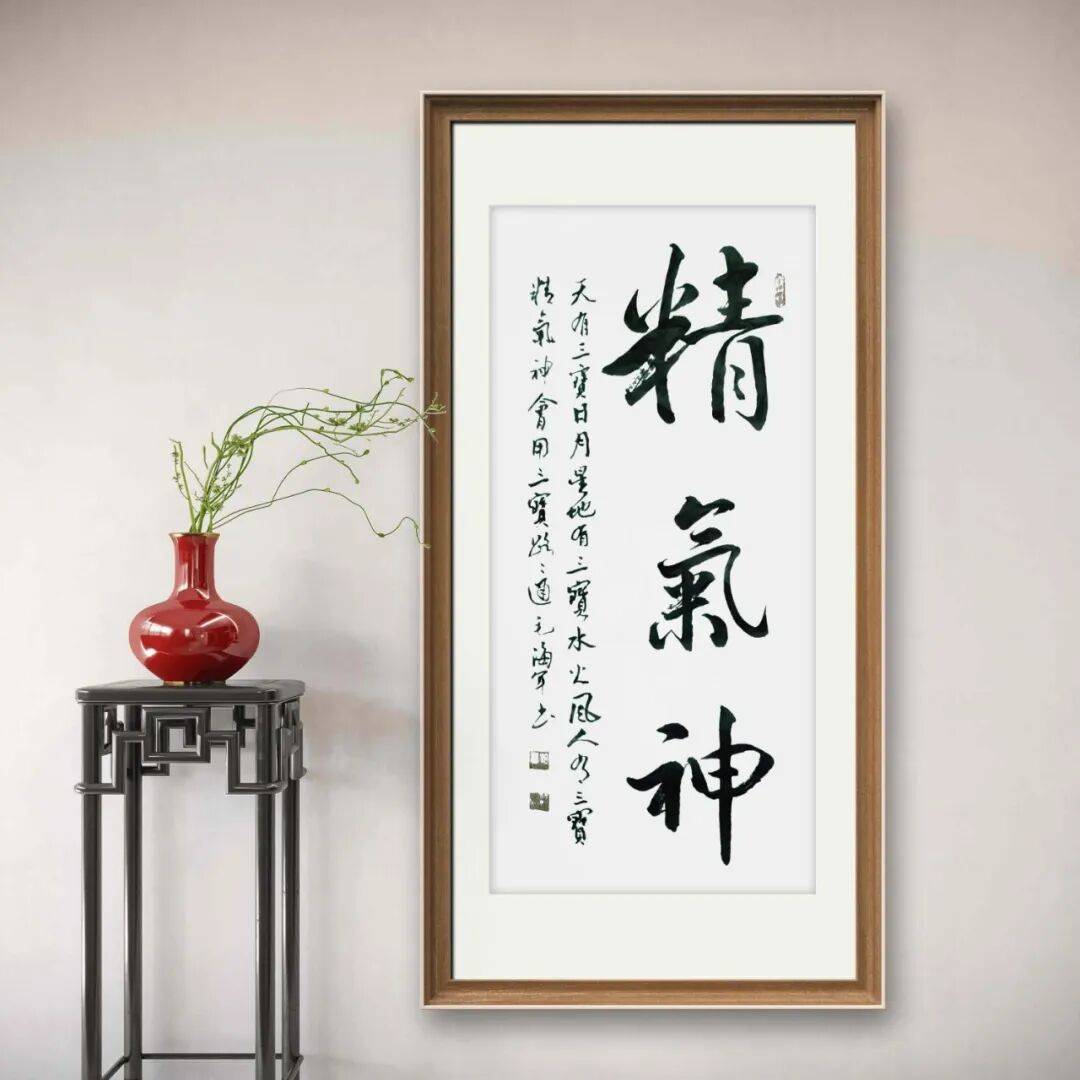 精氣神
天有三寶日月星地有三寶水火風人有三寶
精氣神會用三寶路〻通毛海军书